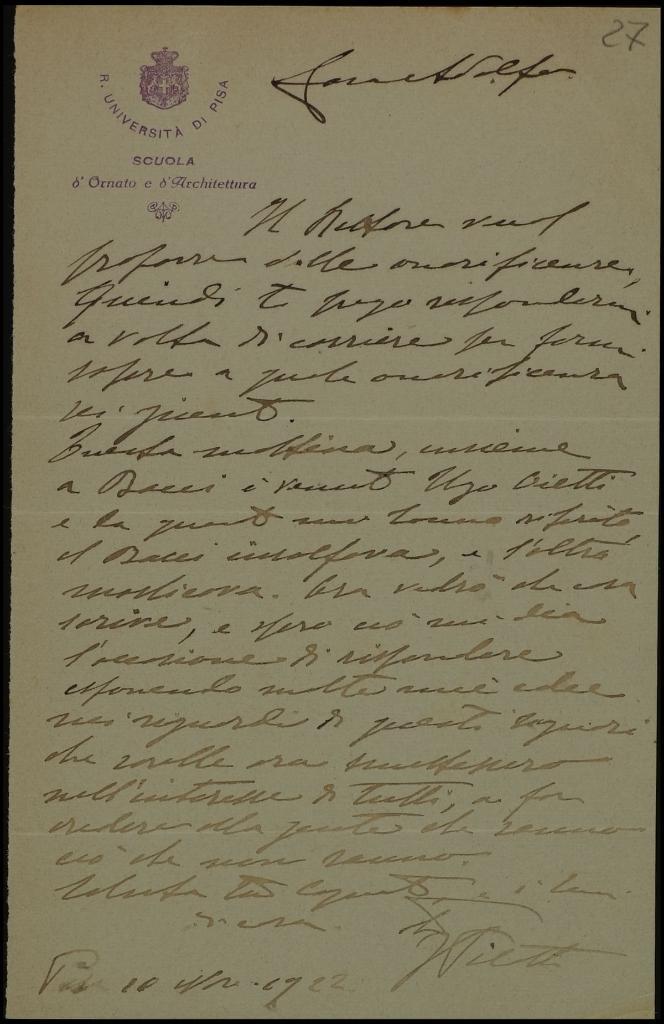 27
R. UNIVERSITÀ DI PISA
SCUOLA
d'Ornato e d'Architettura
Caro Adolfo
Il Rettore vuol
proporre delle onorificenze,
Quindi ti prego rispondermi
a volta di corriere per farmi
sapere a quale onorificenza
sei giunto.
Questa mattina, insieme
a Bacci è venuto Ugo Ojetti
e da quanto mi hanno riferito,
il Bacci insolfava, e l'altro
masticava. Ora vedrò che cosa
scrive, e spero ciò mi dia
l'occasione di rispondere
esponendo molte mie idee
nei riguardi di questi signori
che sarebbe ora smettessero
nell'interesse di tutti, a far
credere alla gente che sanno
ciò che non sanno.
Saluta tuo cognato, e i
di casa.
10 1922